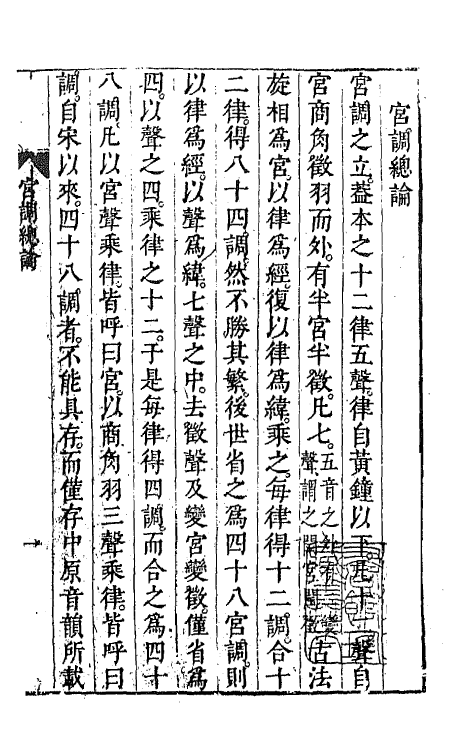 宮調總論
宮調之立葢本之十二律五聲律自黃鐘以下凡十二聲自
宮商角徵羽而外有半宮半徵凡七五音之外有二變聲謂之閏宮閏徵古法
旋相爲宮以律爲經復以律爲緯乘之每律得十二調合十
二律得八十四調然不勝其繁後世省之爲四十八宮調則
以律爲經以聲爲緯七聲之中去徵聲及變宮變徵僅省爲
四以聲之四乘律之十二于是每律得四調而合之爲四十
八調凡以宮聲乘律皆呼曰宮以商角羽三聲乘律皆呼曰
調自宋以來四十八調者不能具存而僅存中原音韻所載
宮調總論
一